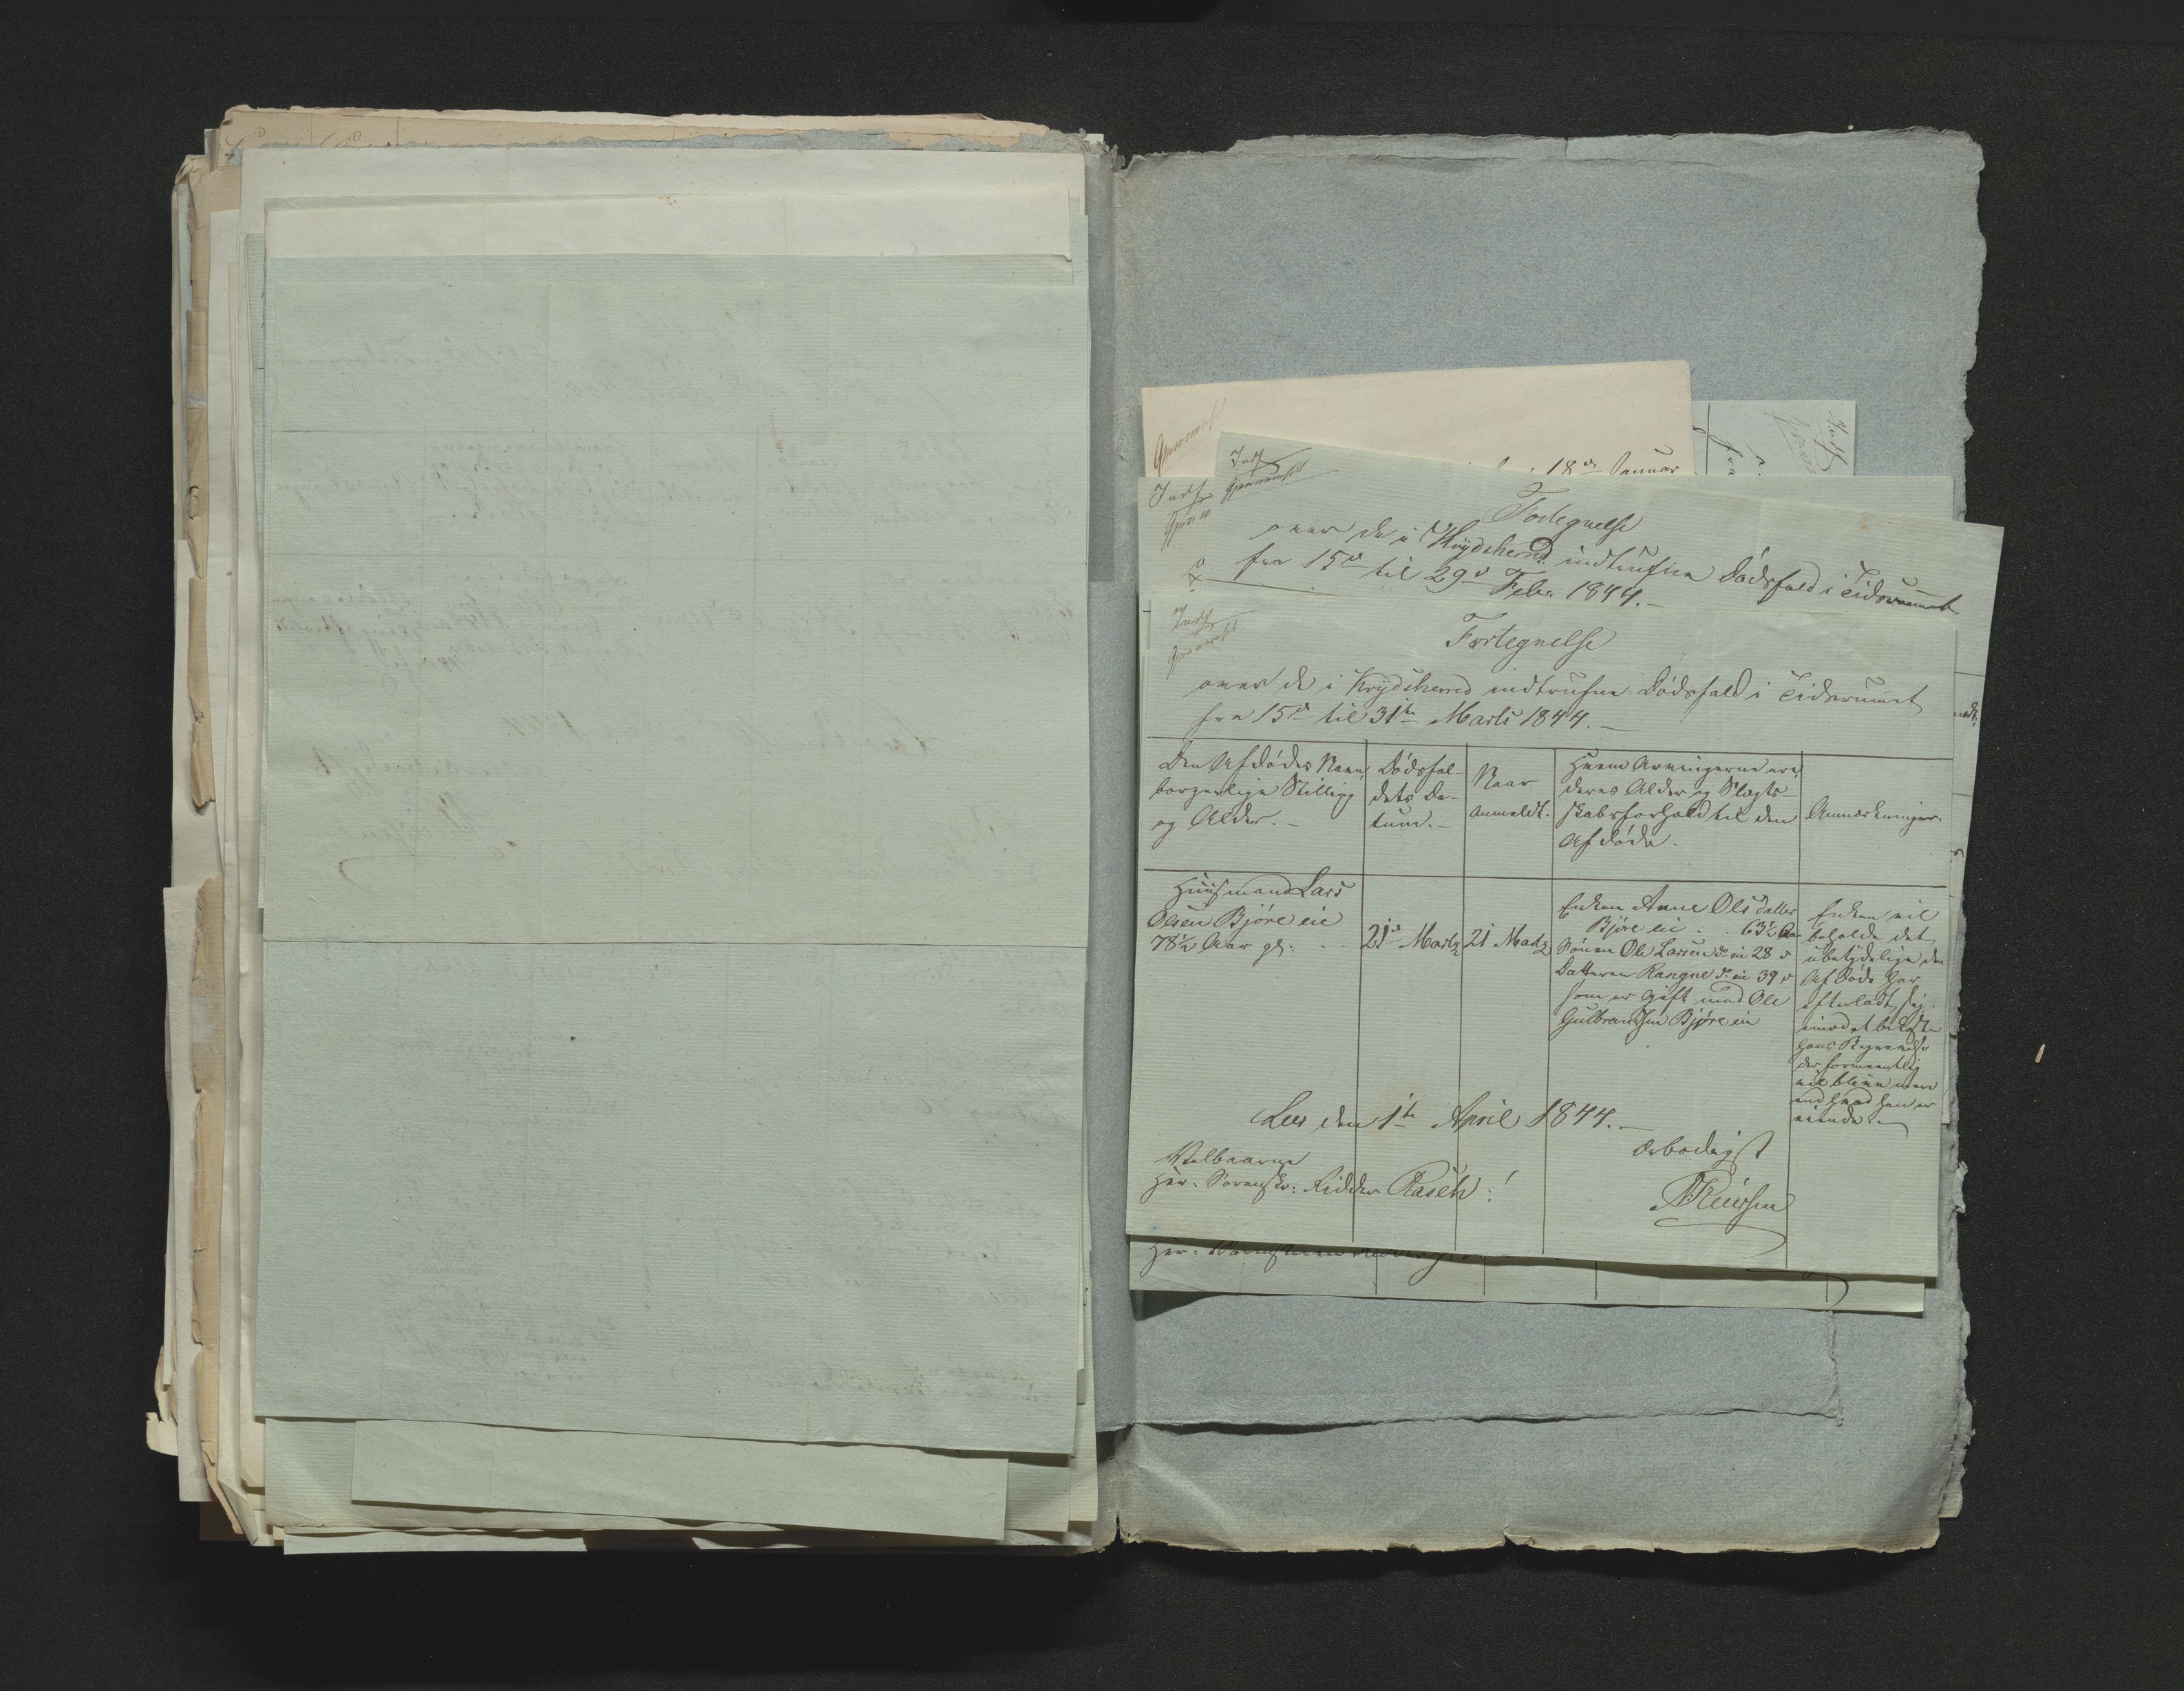 Gjennemset
18de Januar
Indf
Gjennemset
Indf.
Fortegnelse
over de i Krydsherred indtrufne Dødsfald i Tidsrummet
fra 15de til 29de Febr. 1844.-
Indf
Gjennemset
Fortegnelse
over de i Krydsherred indtrufne Dødsfald i Tidsrummet
fra 15de til 31te Marts 1844.-
Den Afdødes Navn,
borgerlige Stilling
og Alder.-
Dødsfal-
dets Da-
tum.-
Naar
anmeldt.
Hvem Arvingerne ere,
deres Alder og Slægts-
skabsforhold til den
Afdøde.
Anmærkninger.
Huusmand Lars
Olsen Bjøre eie
78½ Aar gl:
21de Marts
21 Marts
Enken Anne Olsdatter
Bjøre eie . . 63½ Aar
Sønnen Ole Larsen do eie 28 "
Datteren Rangne do eie 39 "
som er gift med Ole
Gulbrandsen Bjøre eie
Enken vil
beholde det
ubetydelige den
Afdøde har
efterladt sig
imod at bekoste
hans Begravelse
der formeentlig
vil blive mere
end hvad han er
eiende.-
Lees den 1te April 1844.-
Velbaarne
Hr. Sorenskr: Ridder Rasch!
Ærbødigst